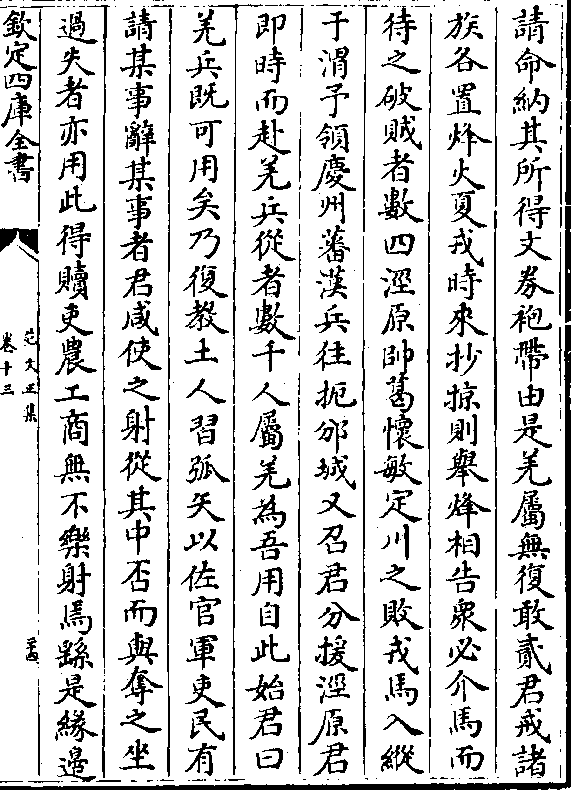 請命納其所得文券袍帶由是羌屬無復敢貳君戒諸
族各置烽火夏戎時來抄掠則舉烽相告衆必介馬而
待之破賊者數四涇原帥葛懷敏定川之敗戎馬入縱
于渭予領慶州蕃漢兵往扼邠城又召君分援涇原君
即時而赴羌兵從者數千人屬羌為吾用自此始君曰
羌兵既可用矣乃復教土人習弧矢以佐官軍吏民有
請某事辭某事者君咸使之射從其中否而與奪之坐
過失者亦用此得贖吏農工商無不樂射焉繇是緣邊
欽定四庫全書
范文正集
卷十三
二十四